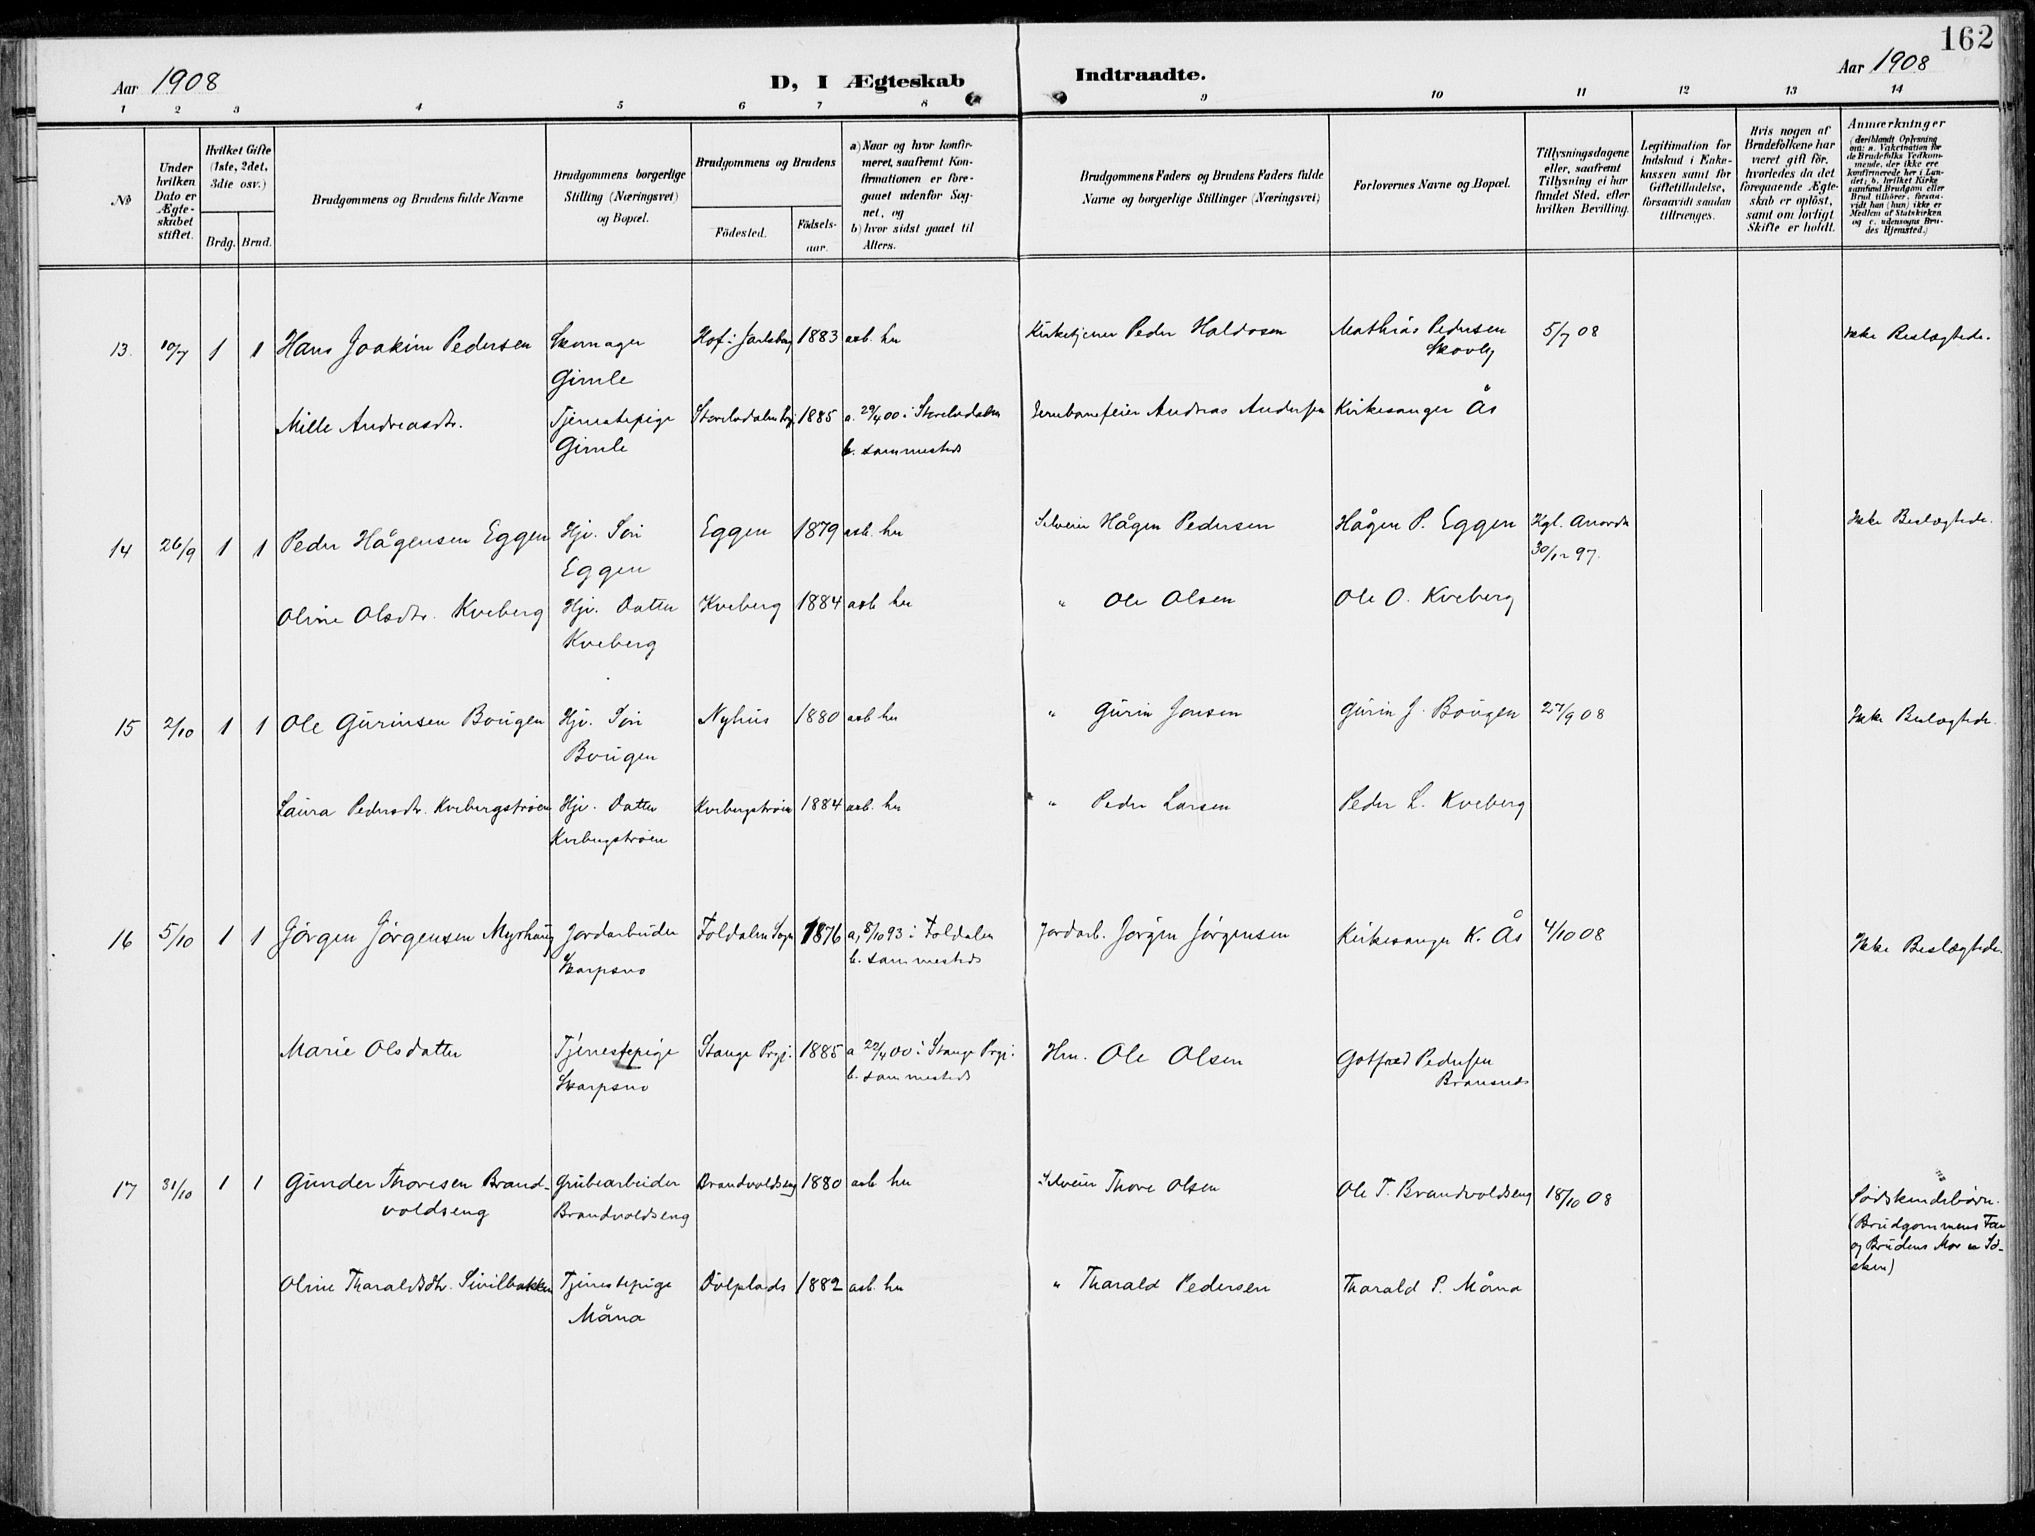 162
Aar 1908
D, I Ægteskab Indtraadte.
Aar 1908
1 2 3 4 5 6 7 8 9 10 11 12 13 14
No
Under hvilken Dato er Ægteskabet stiftet.
Hvilket Gifte (1ste, 2det, 3die osv.)
Brdg. Brud.
Brudgommens og Brudens fulde Navne
Brudgommens borgerlige Stilling (Næringsvei) og Bopæl.
Brudgommens og Brudens
Födested.
Födselsaar.
a) Naar og hvor konfirmeret, saafremt Konfirmationen er foregaaet udenfor Sognet, og
b) hvor sidst gaaet til Alters.
Brudgommens Faders og Brudens Faders fulde Navne og borgerlige Stillinger (Næringsvei)
Forlovernes Navne og Bopæl.
Tillysningsdagene eller, saafremt Tillysning ei har fundet Sted, efter hvilken Bevilling.
Legitimation for Indskud i Enkekassen samt for Giftetilladelse, forsaavidt saadan tiltrænges.
Hvis nogen af Brudefolkene har været gift för, hvorledes da det foregaaende Ægteskab er oplöst, samt om lovligt Skifte er holdt.
Anmærkninger
(deriblandt Oplysning om: a. Vakcination for de Brudefolks Vedkommende, der ikke ere konfirmerede her i Landet; b. hvilket Kirkesamfund Brudgom eller Brud tilhörer, forsaavidt han (hun) ikke er Medlem af Statskirken og c. udensogns Brudes Hjemsted.)
13. 10/7 1 1 Hans Joakim Pedersen Skomager Hof i Jarlsberg 1883 asb. her Kirketjener Peder Haldosen Mathias Pedersen 5/7 08 Ikke Beslægtede.
Gimle Skovly
Mille Andreasdtr. Tjenestepige Storelvdalen Prgj. 1885 a. 29/4 00 i Storelvdalen Jernbanefeier Andreas Andersen Kirkesanger Ås
Gimle b. sammesteds
14 26/9 1 1 Peder Hågensen Eggen Hjv. Sön Eggen 1879 asb. her Selveier Hågen Pedersen Hågen P. Eggen Kgl. Anordn Ikke Beslægtede.
Eggen 30/12 97.
Oline Olsdtr. Kveberg Hjv. Datter Kveberg 1884 asb her " Ole Olsen Ole O. Kveberg
Kveberg
15 2/10 1 1 Ole Gurinsen Bougen Hjv. Sön Nyhus 1880 asb her " Gurin Jonsen Gurin J. Bougen 27/9 08 Ikke Beslægtede.
Bougen
Laura Pedersdtr. Kvebergströen Hjv. Datter Kvebergströen 1884 asb. her " Peder Larsen Peder L. Kveberg
Kvebergströen
16 5/10 1 1 Jörgen Jörgensen Myrhaug Jordarbeider Foldalen Sogn 1876 a, 8/10 93 i Foldalen Jordarb. Jörgen Jörgensen Kirkesanger K. Ås 4/10 08 Ikke Beslægtede.
Skarpsno b. sammesteds
Marie Olsdatter Tjenestepige Stange Prgj. 1885 a 22/4 00 i Stange Prgj. Hm. Ole Olsen Gotfred Pedersen
Skarpsno b. sammesteds Bransnes
17 31/10 1 1 Gunder Thoresen Brand- Grubearbeider Brandvoldseng 1880 asb her Selveier Thore Olsen Ole T. Brandvoldseng 18/10 08 Södskendebörn.
voldseng Brandvoldseng (Brudgommens Far
og Brudens Mor er Sö-
sken)
Oline Tharaldsdtr. Sivilbakken Tjenestepige Dölplads 1882 asb. her " Tharald Pedersen Tharald P. Måna
Måna